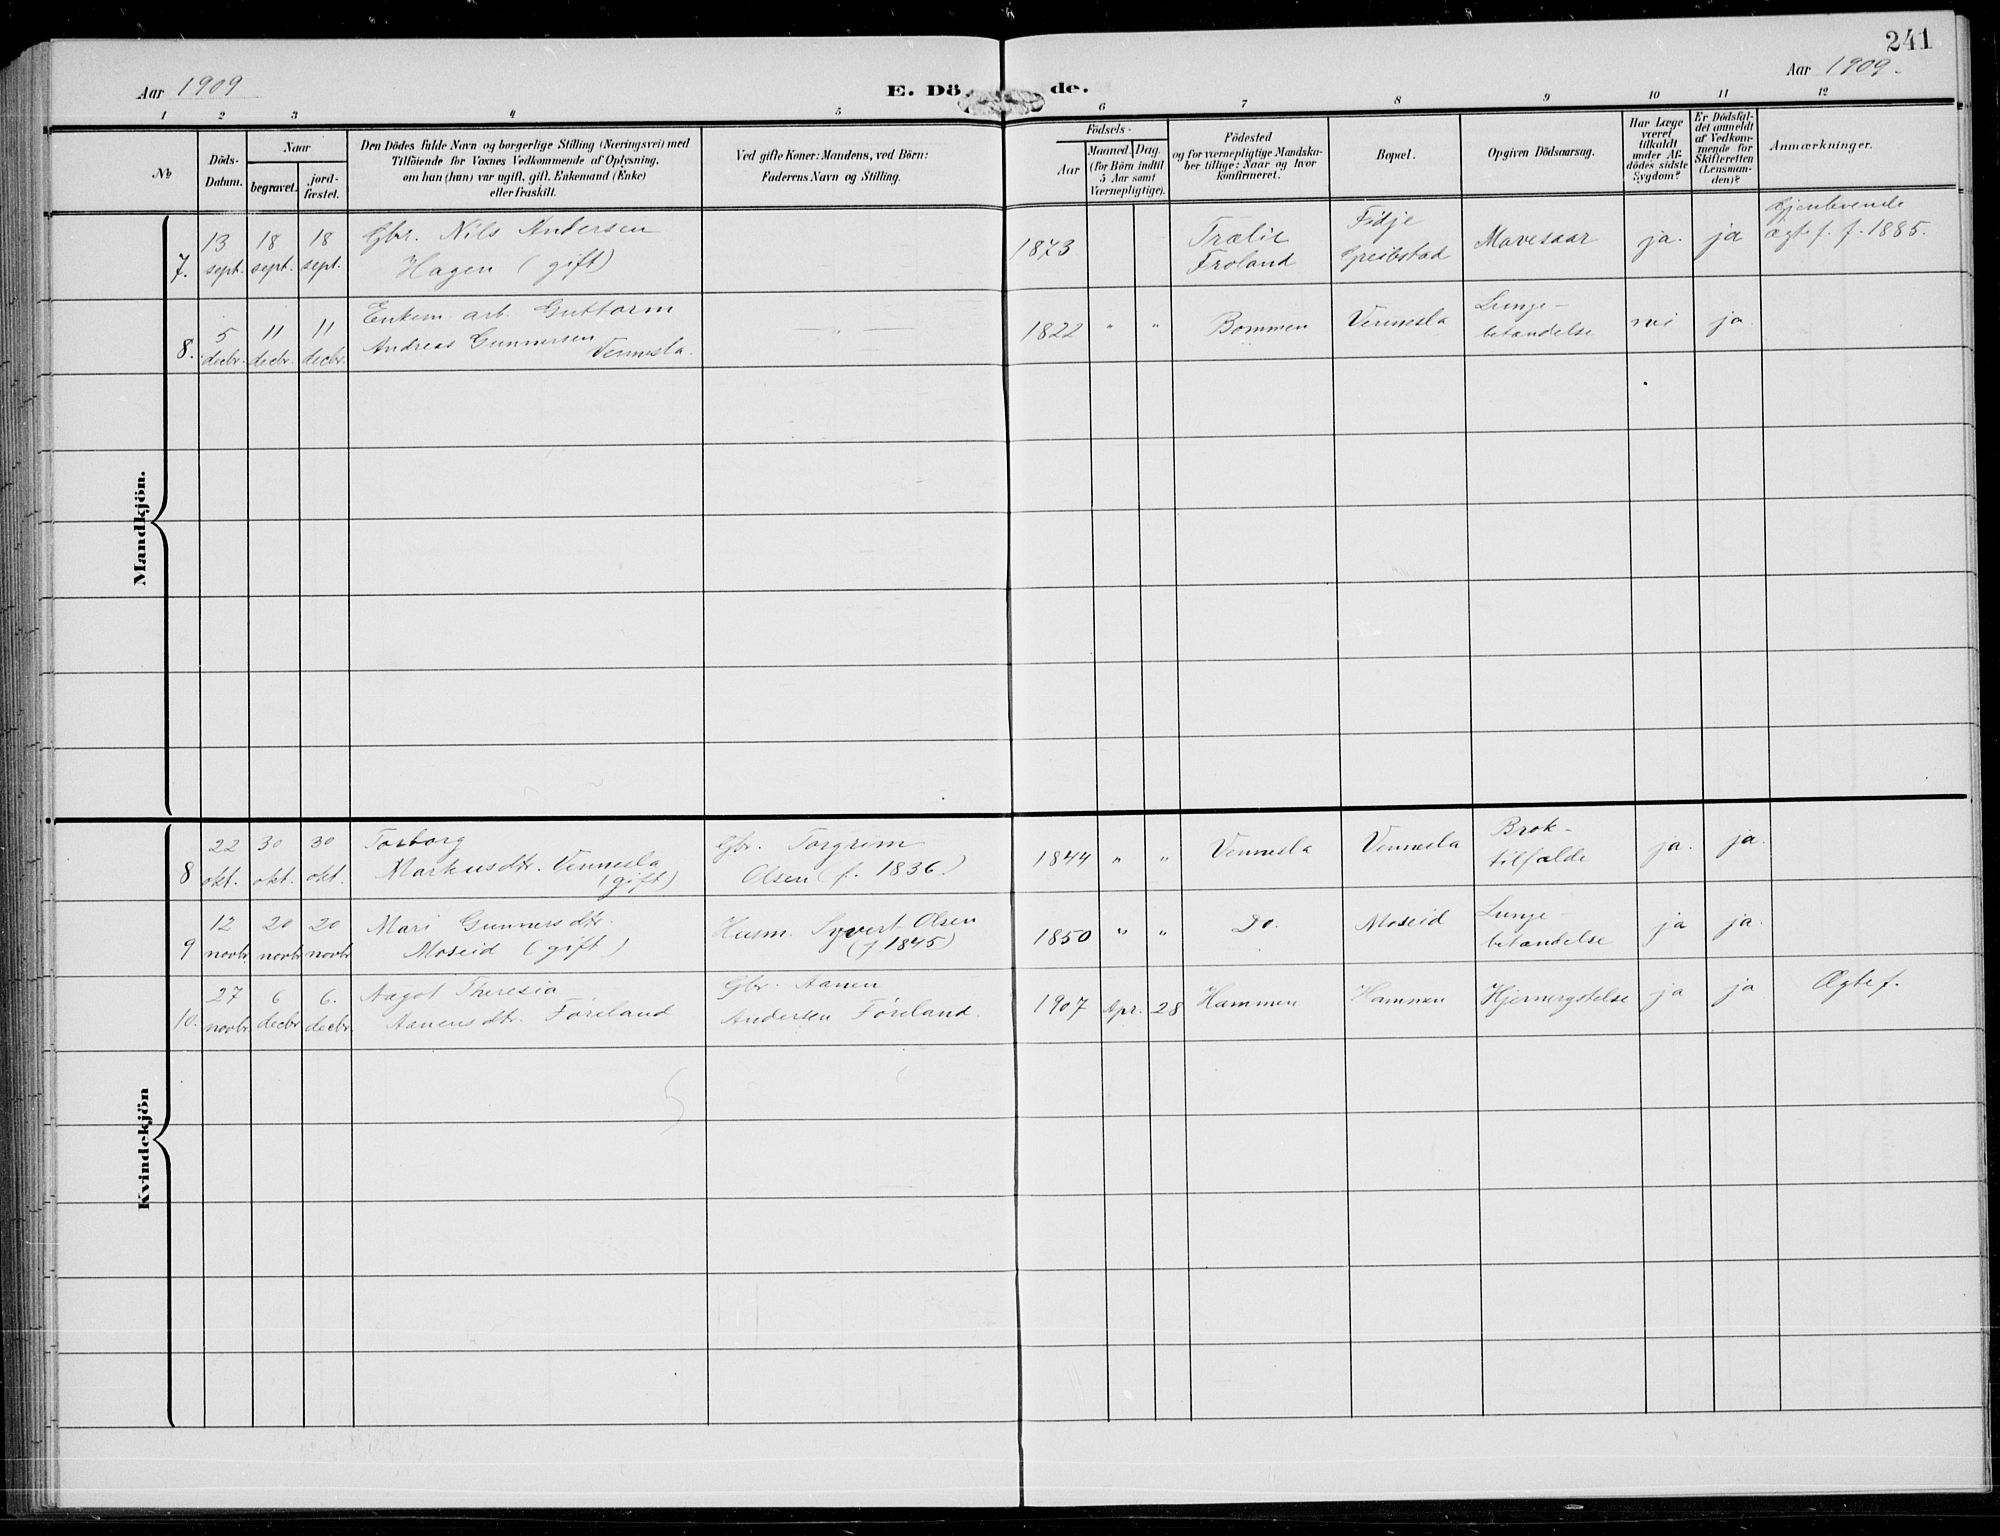 241
Aar 1909
E. Dö de.
Aar 1909.
1 2 3 4 5 6 7 8 9 10 11 12
No
Döds-
Datum.
Naar
begravet.
jord-
fæstet.
Den Dödes fulde Navn og borgerlige Stilling (Næringsvei) med
Tilföiende for Voxnes Vedkommende af Oplysning,
om han (hun) var ugift, gift, Enkemand (Enke)
eller fraskilt.
Ved gifte Koner: Mandens, ved Börn:
Faderens Navn og Stilling.
Födsels-
Aar
Maaned.
Dag.
(for Börn indtil
5 Aar samt
Værnepligtige).
Födested
og for værnepligtige Mandska-
ber tillige: Naar og hvor
konfirmeret.
Bopæl.
Opgiven Dödsaarsag.
Har Læge
været
tilkaldt
under Af-
dödes sidste
Sygdom?
Er Dödsfal-
det anmeldt
af Vedkom-
mende for
Skifteretten
(Lensman-
den)?
Anmærkninger.
Mandkjön.
7.
13
sept.
18
sept.
18
sept.
Gbr. Nils Andersen
Hagen (gift)
1873
Trælie
Froland
Fidje
Greibstad
Mavesaar
ja.
ja
Gjenlevende
ægtef. f. 1885.
8.
5
decbr.
11
decbr.
11
decbr.
Enkem. arb. Guttorm
Andreas Gunnersen
Vennesla.
— „ —
1822
„
„
Bommen
Vennesla
Lunge-
betændelse
nei
ja.
Kvindekjön
8
22
okt.
30
okt.
30
okt.
Torborg
Markusdtr. Vennesla
(gift)
Gbr. Torgrim
Olsen (f. 1836.)
1844
„
„
Vennesla
Vennesla
Brok-
tilfælde
ja.
ja.
9
12
novbr
20
novbr
20
novbr
Mari Gunnersdtr.
Moseid (gift)
Husm. Syvert Olsen
(f 1845)
1850
„
„
Do.
Moseid
Lunge-
betændelse
ja
ja.
10.
27
novbr
6
decbr
6.
decbr.
Aagot Theresia
Aanensdtr. Føreland
Gbr. Aanen
Andersen Føreland.
1907
Apr.
28
Hammen
Hammen
Hjernerystelse
ja
ja
Ægtef.